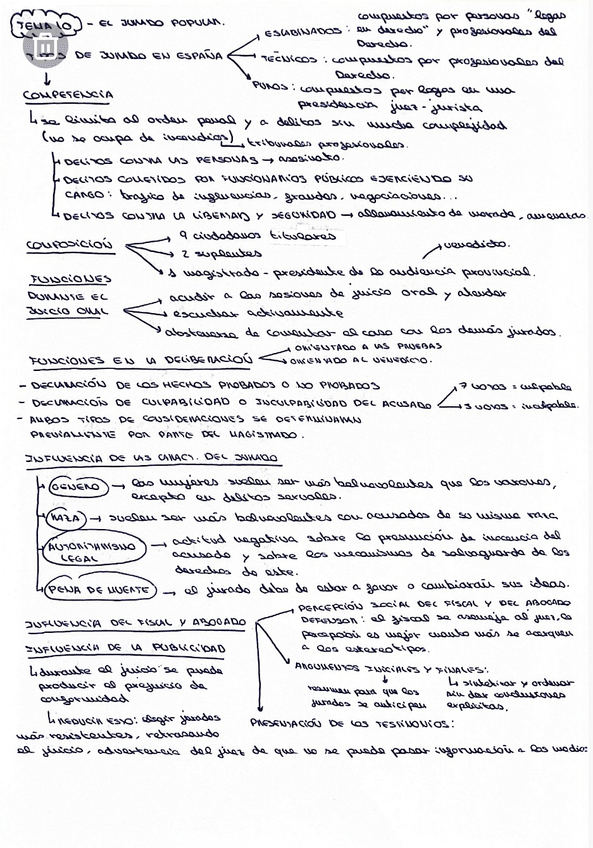 TEMA 10 - EL JURADO POPULAR.
TIPOS DE JURADO EN ESPAÑA
ESCABINADOS: compuestos por personas "legas
en derecho" y profesionales del
Derecho.
TÉCNICOS: compuestos por profesionales del
Derecho.
PUROS: compuestos por legos en una
presidencia juez-jurista
COMPETENCIA
se limita al orden penal y a delitos sin mucha complejidad
(no se ocupa de incendios) tribunales profesionales.
DELITOS CONTRA LAS PERSONAS → asesinato.
DELITOS COMETIDOS POR FUNCIONARIOS PÚBLICOS EJERCIENDO SU
CARGO: tráfico de influencias, fraudes, negociaciones...
DELITOS CONTRA LA LIBERTAD Y SEGURIDAD → allanamiento de morada, amenazas
COMPOSICIÓN
9 ciudadanos titulares
2 suplentes
1 magistrado-presidente de la audiencia provincial.
veredicto.
FUNCIONES
DURANTE EL
JUICIO ORAL
acudir a las sesiones de juicio oral y atender
escuchar activamente
abstenerse de comentar el caso con los demás jurados.
FUNCIONES EN LA DELIBERACIÓN
ORIENTADO A LAS PRUEBAS
ORIENTADO AL VEREDICTO.
- DECLARACIÓN DE LOS HECHOS PROBADOS O NO PROBADOS
- DECLARACIÓN DE CULPABILIDAD O INCULPABILIDAD DEL ACUSADO
7 votos = culpable
5 votos = inculpable.
- AMBOS TIPOS DE CONSIDERACIONES SE DETERMINARÁN
PREVIAMENTE POR PARTE DEL MAGISTRADO.
INFLUENCIA DE LAS CARACT. DEL JURADO
GÉNERO → las mujeres suelen ser más benevolentes que los varones,
excepto en delitos sexuales.
RAZA → suelen ser más benevolentes con acusados de su misma raza
AUTORITARISMO
LEGAL
→ actitud negativa sobre la presunción de inocencia del
acusado y sobre los mecanismos de salvaguarda de los
derechos de este.
PENA DE MUERTE → el jurado debe de estar a favor o cambiarían sus ideas.
INFLUENCIA DEL FISCAL Y ABOGADO
PERCEPCIÓN SOCIAL DEL FISCAL Y DEL ABOGADO
DEFENSOR: el fiscal se asemeja al juez, la
percepción es mejor cuanto más se acerquen
a los estereotipos.
ARGUMENTOS INICIALES Y FINALES:
resumen para que los
jurados se anticipen
sintetizar y ordenar
sin dar conclusiones
explícitas.
PRESENTACIÓN DE LOS TESTIMONIOS:
INFLUENCIA DE LA PUBLICIDAD
durante el juicio se puede
producir el prejuicio de
conformidad
REDUCIR ESTO: elegir jurados
más resistentes, retrasando
el juicio, advertencia del juez de que no se puede pasar información a los medios